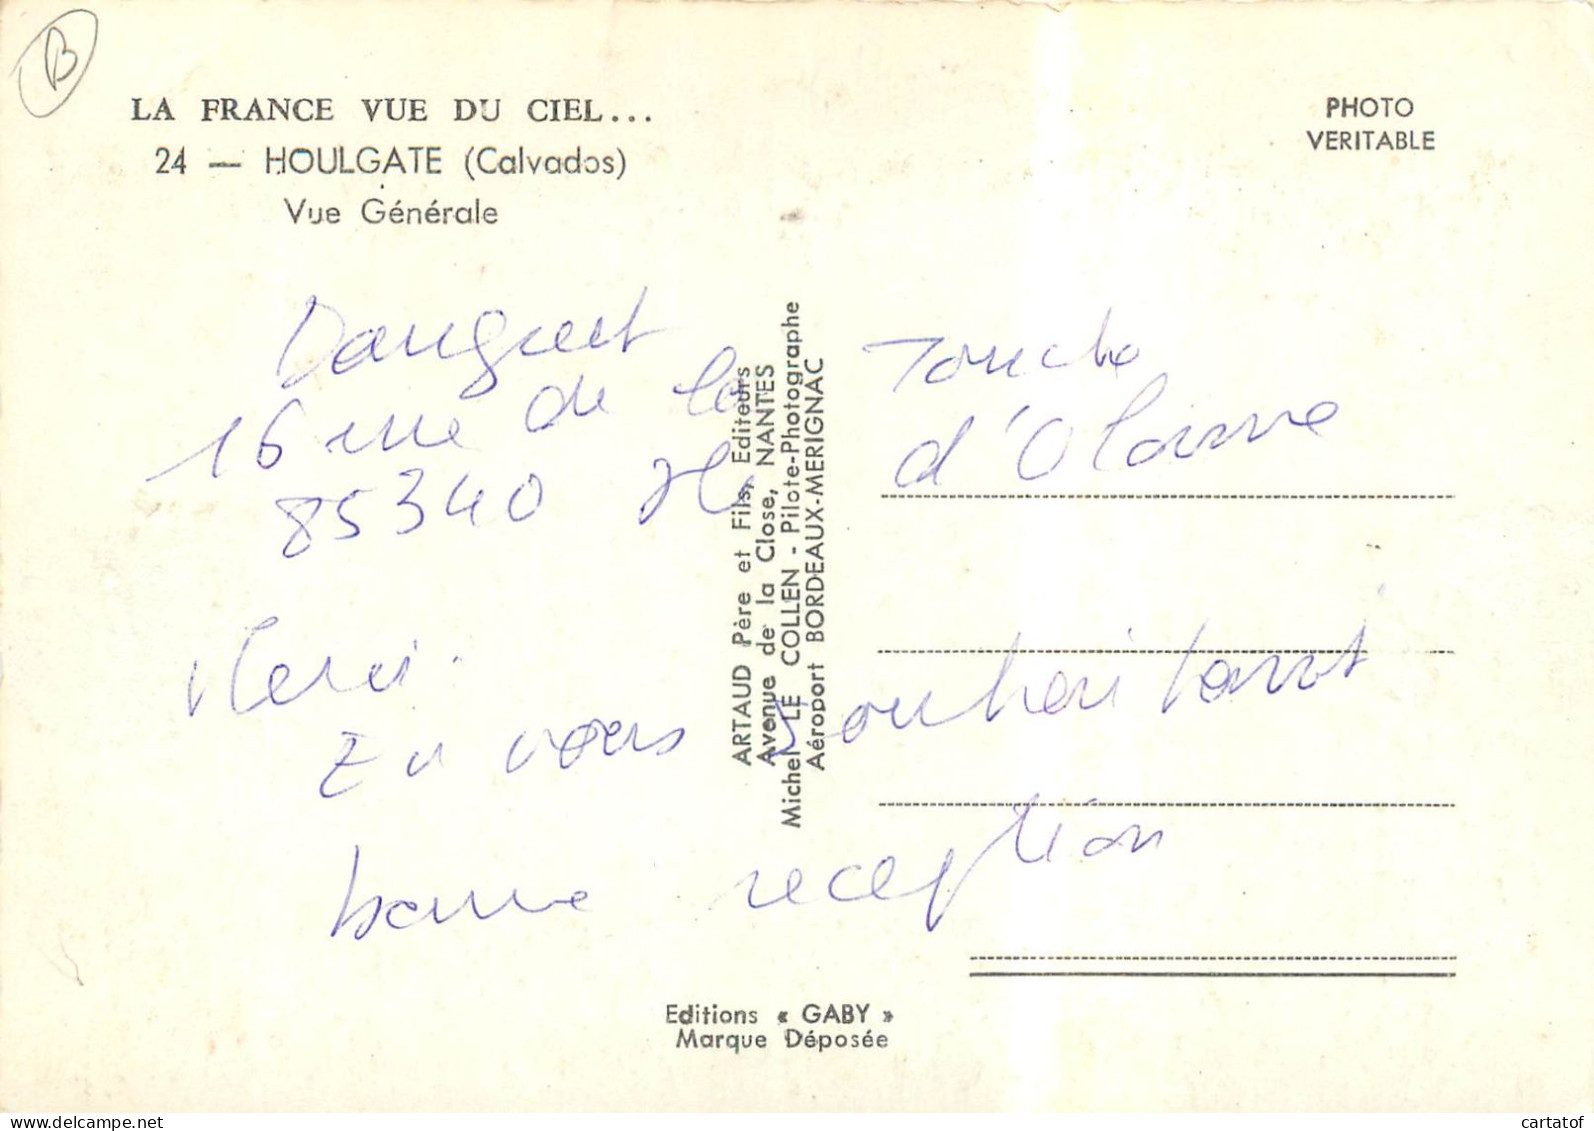 B
LA FRANCE VUE DU CIEL...
24 — HOULGATE (Calvados)
Vue Générale
PHOTO
VERITABLE
16 rue de la Touche
85340 d'Olonne
Merci.
En vous souhaitant
bonne reception
ARTAUD Père et Fils, Editeurs
Avenue de la Close, NANTES
Michel LE COLLEN - Pilote-Photographe
Aéroport BORDEAUX-MERIGNAC
Editions « GABY »
Marque Déposée
www.delcampe.net
cartatof